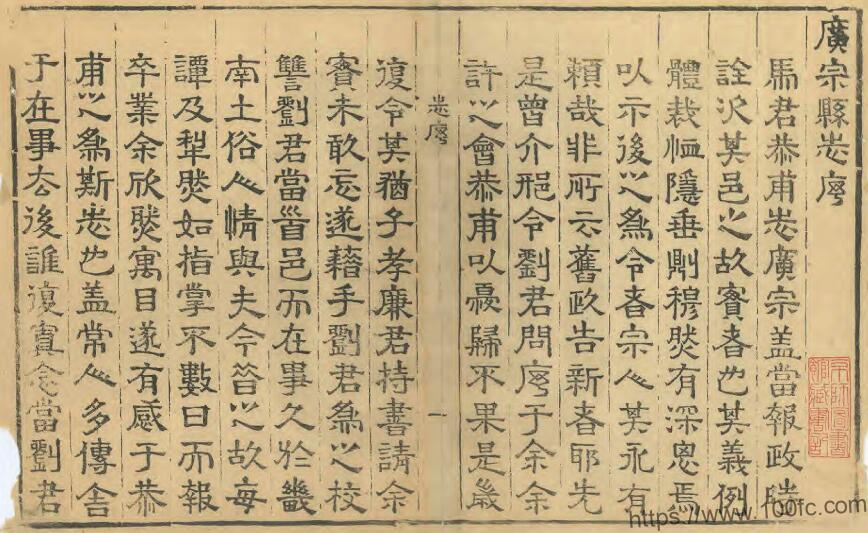 廣宗縣志序
馬君恭甫志廣宗盖當報政時
詮次其邑之故實者也其義例
體裁恤隱垂則穆然有深思焉
以示後之爲令者宗人其永有
賴哉非所云舊政告新者耶先
是曾介邢令劉君問序于余余
許之會恭甫以憂歸不果是歲
志序
一
復令其猶子孝廉君持書請余
實未敢忘遂藉手劉君爲之校
讐劉君當首邑而在事久於畿
南土俗人情與夫今昔之故每
譚及犁然如指掌不數日而報
卒業余欣然寓目遂有感于恭
甫之爲斯志也盖常人多傳舍
于在事去後誰復寘念當劉君
https://www.100fc.com